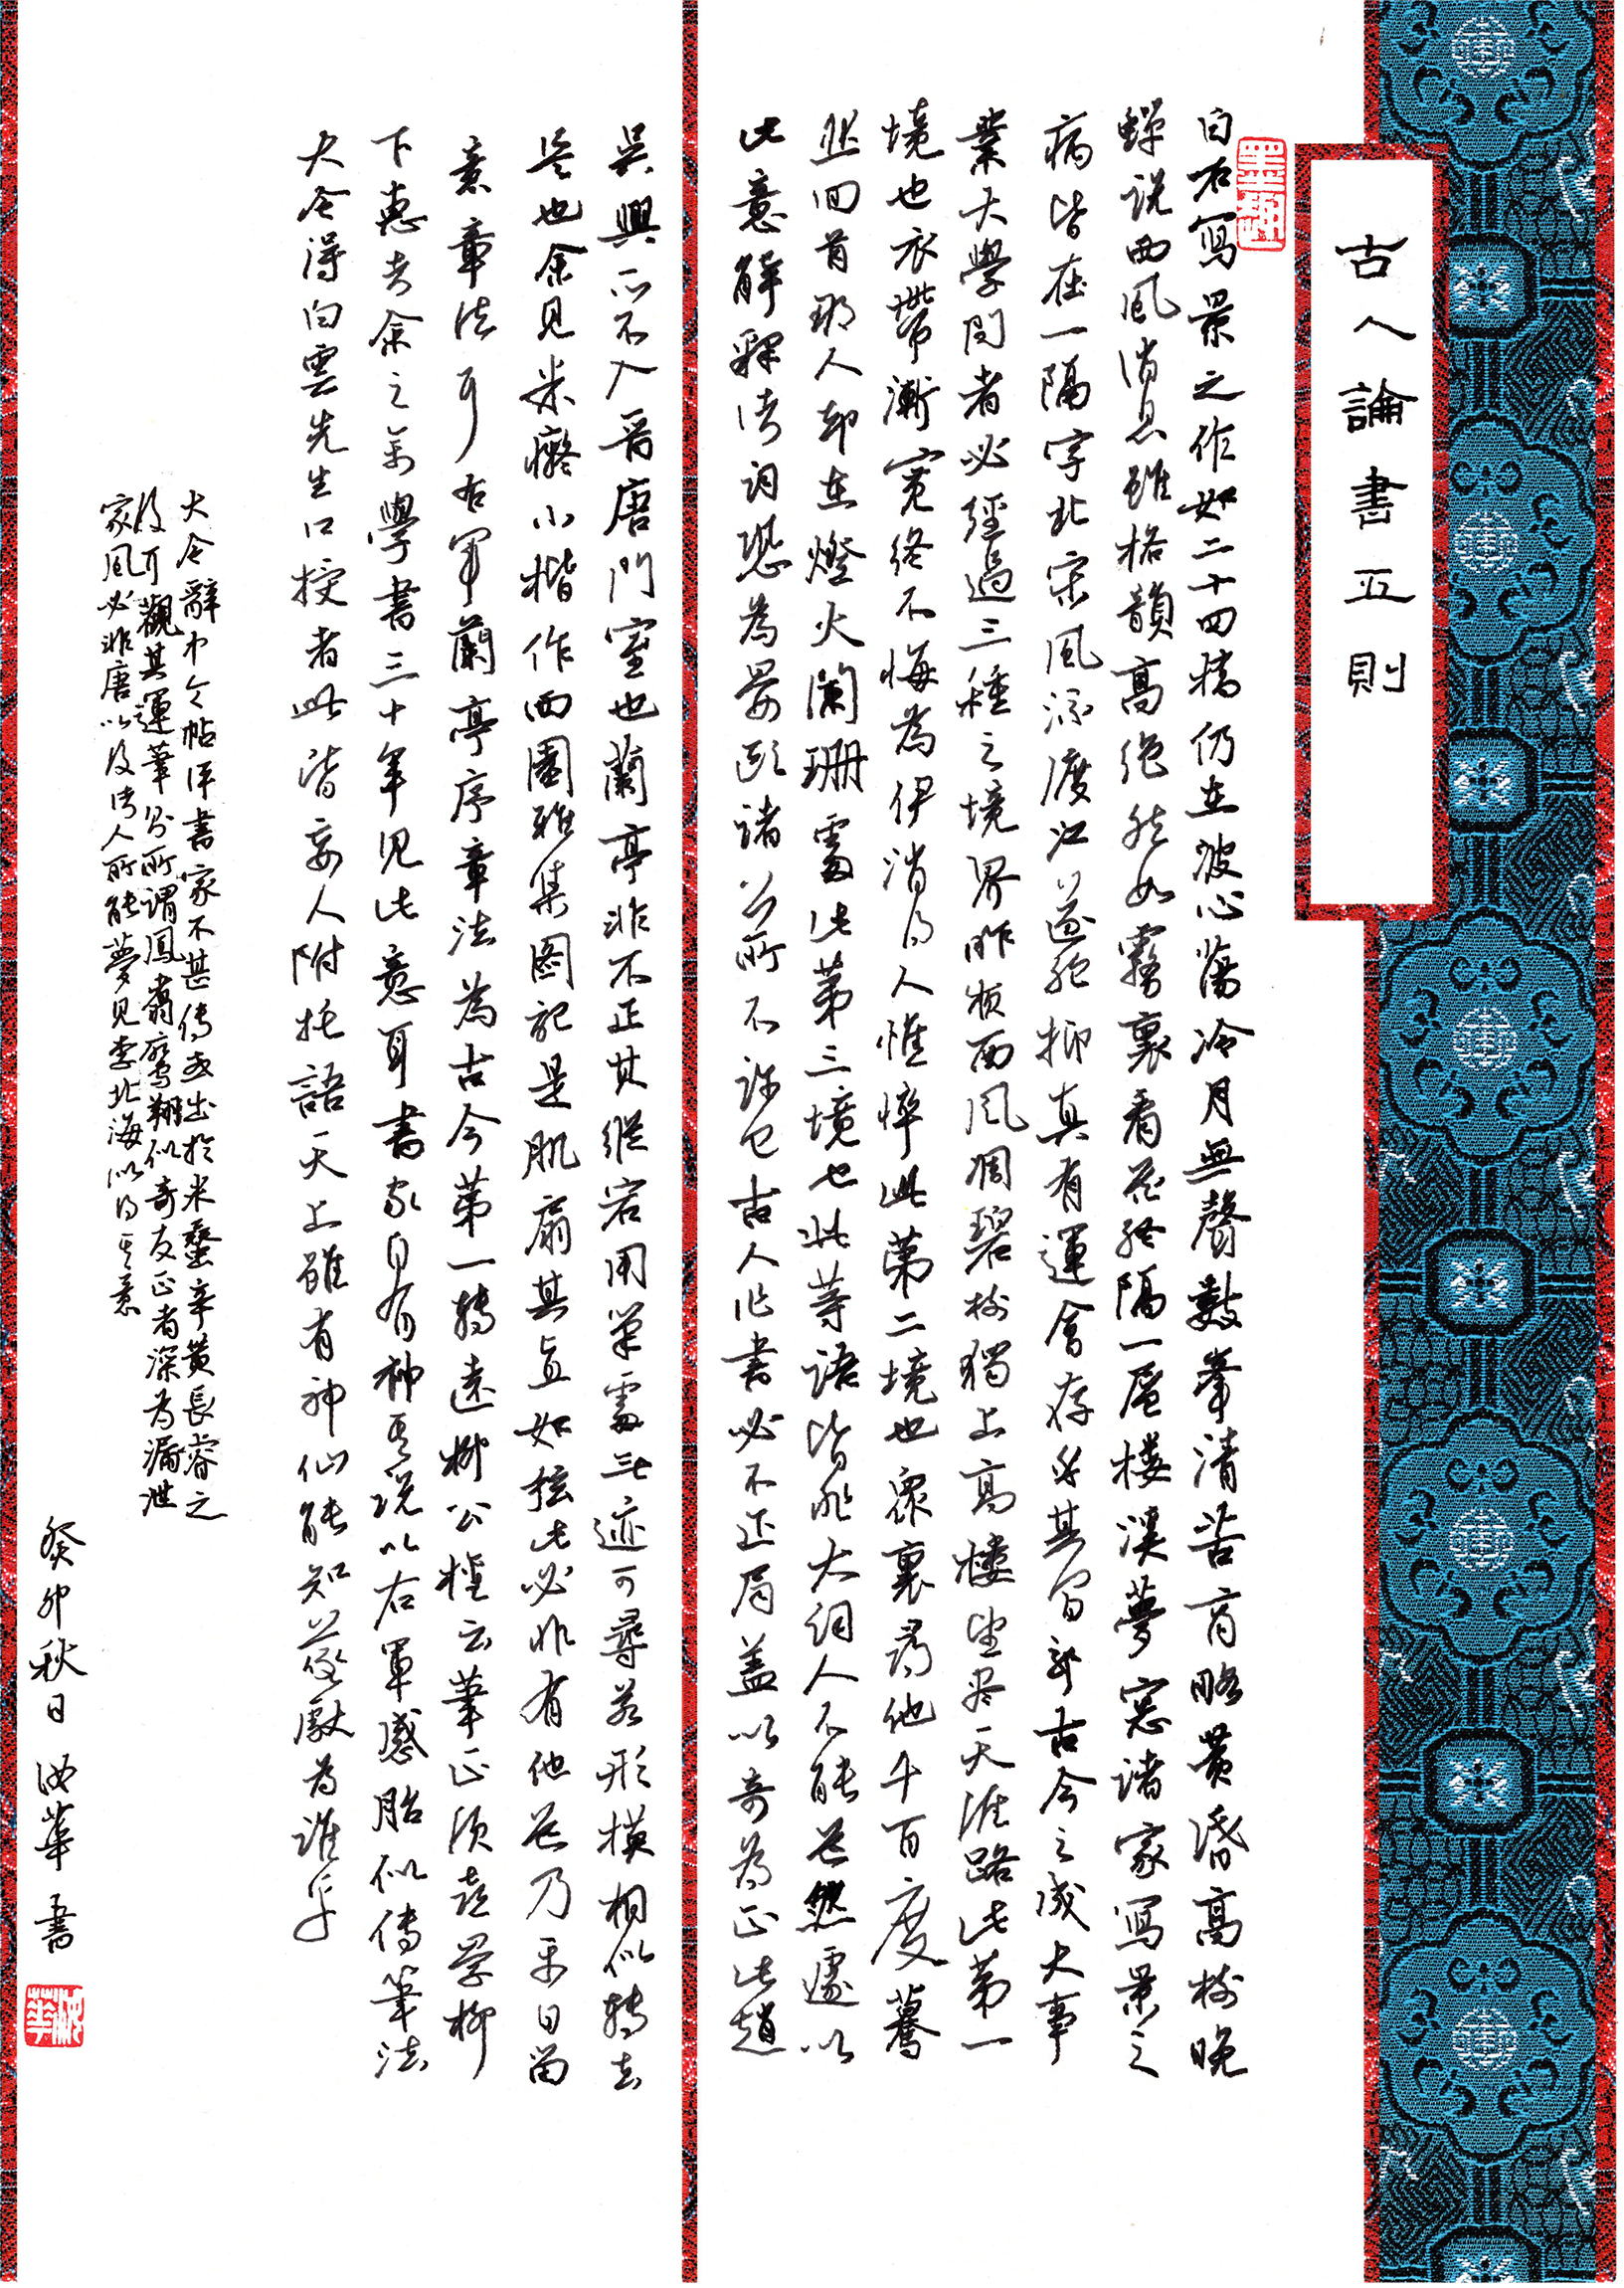 古人論書五則
墨趣
白石寫景之作如二十四橋仍在波心蕩冷月無聲數峯清苦商略黃昏高樹晚
蟬说西風消息雖格韻高绝然如霧裏看花終隔一層梅溪夢窓诸家寫景之
病皆在一隔字北宋風流渡江遂絕抑真有運會存乎其间耶古今之成大事
業大學问者必經過三種之境界昨夜西風凋碧树獨上高樓望尽天涯路此第一
境也衣帶漸寬终不悔為伊消得人憔悴此第二境也眾裏尋他千百度驀
然回首那人却在燈火闌珊處此第三境也此等语皆非大词人不能道然遽以
此意解釋诸词恐為晏歐諸公所不许也古人作書必不正局盖以奇為正此趙
吳興所不入晋唐門室也蘭亭非不正其縱宕用筆處無迹可尋若形模相似轉去
遠也余見米癡小楷作西園雅集图記是肌扇其直如弦此必非有他道乃平日留
意章法耳右軍蘭亭序章法為古今第一轉遠柳公權云筆正须善學柳
下惠者余之系學書三十年見此意耳書家自有神其说以右軍感胎似傳筆法
大令得白雲先生口授者此皆妄人附托語天上雖有神仙能知羲獻為誰乎
大令辭中令帖评書家不甚传或出於米墊辛黃長睿之
後耳觀其運筆㕣所谓鳳翥鸞翔似奇反正者深为漏泄
家風必非唐以後诸人所能夢見李北海似得其意
癸卯秋日 汝華書
汝華